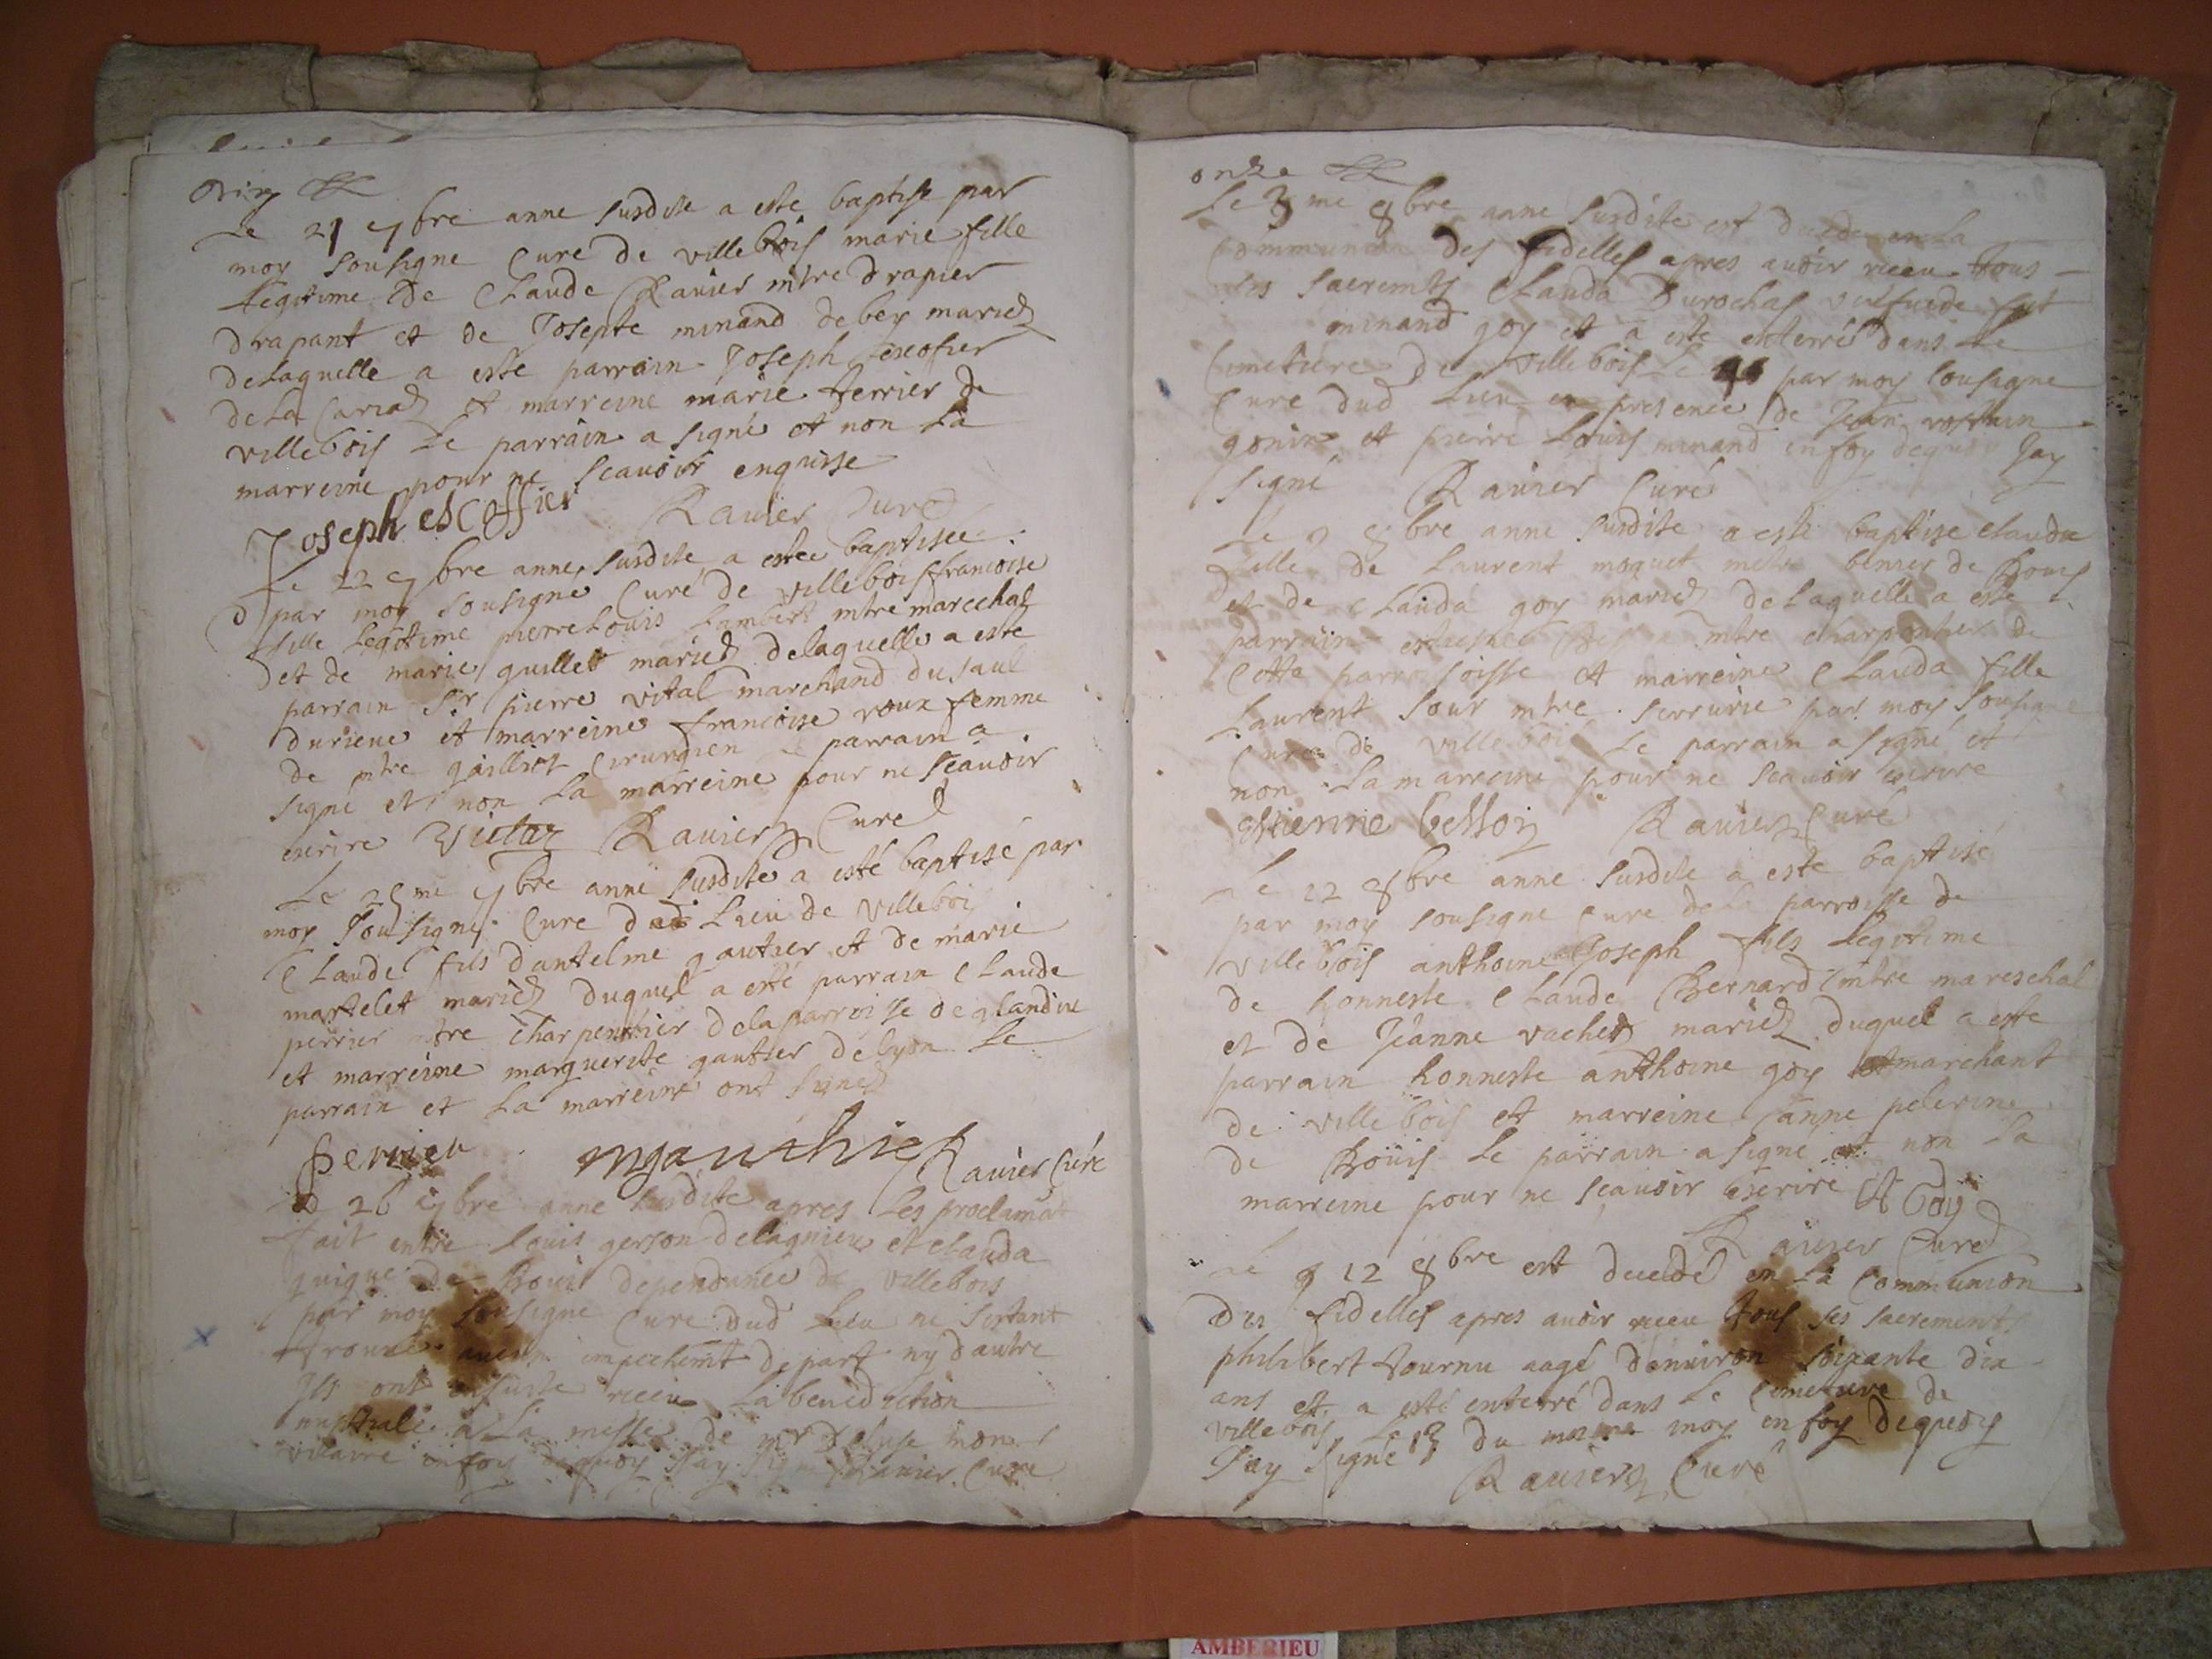 Le 21 7bre anne susdite a este baptise par
moy sousigne Cure de villebois marie fille
legitime de Claude Ravier mtre drapier
drapant et de Josepte minand debey mariez
delaquelle a este parrain Joseph
de la et marreine marie ferrier de
villebois le parrain a signé et non la
marreine pour ne scauoir enquise
Joseph escoffier Ravier Curé
Le 22 7bre anne susdite a estee baptisee
par moy sousigne Curé de villebois francoise
fille legitime pierre Louis Lambert mtre marechal
et de marie guillet mariez delaquelle a este
parrain Sr pierre vital marchand du saul
et marreine francoise roux femme
de mtre Cirurgien le parrain a
signé et non la marreine pour ne scauoir
escrire Vital Ravier Curé
Le 25me 7bre anne susdite a esté baptisé par
moy sousigne Cure dud Lieu de Villebois
Claude fils dantelme gautier et de marie
martelet mariez duquel a esté parrain Claude
perrier mtre charpentier dela parroisse de glandieu
et marreine marguerite gautier de lyon Le
parrain et La marreine ont signez
perrier mgauthier Ravier Curé
Le 26 7bre anne susdite apres les proclamat
fait entre Louis gerson de lagnieu et Clauda
de Bouis dependance de villebois
par moy sousigne Cure dud Lieu ne sestant
trouvé aucun empechemt de part ny dautre
Ils ont ensuite receu La benediction
nuptiale a La messe de mr mon
vicaire en foy dequoy Jay signe Ravier Curé
onze
Le 3me 8bre anne susdite est decede en la
Communion des fidelles apres auoir receu tous
ses sacremts Clauda Durochas de fut
minand goy et a este enterré dans Le
Cimetiere de Villebois Le par moy sousigne
Cure dud Lieu en presence de Jean
gonin et pierre Louis minand en foy dequoy Jay
signé Ravier Curé
Le 8bre anne susdite a esté baptise claudae
fille de Laurent moquet mtre de Bouis
et de Clauda goy mariez delaquelle a este
parrain estienne mtre charpentier de
Cette parroisse et marreine Clauda fille
Laurent Sour mtre serrurie par moy sousigne
Cure de villebois Le parrain a signé et
non La marreine pour ne scauoir escrire
estienne besson Ravier Curé
Le 12 8bre anne susdite a este baptisé
par moy sousigne Cure de la parroisse de
villebois anthoine Joseph fils legitime
de honneste Claude Bernard mtre mareschal
et de Jeanne vachet mariez duquel a este
parrain honneste anthoine goy marchant
de villebois et marreine anne pelerine
de Boüis Le parrain a signé et non La
marreine pour ne scauoir escrire A Goy
Ravier Curé
Le 12 8bre est decedé en La Communion
Des fidelles apres auoir receu tous ses sacrements
philibert tournu aagé denuiron soixante dix
ans et a esté enterré dans Le Cimetiere de
villebois Le 13 du mesme moy en foy dequoy
Jay Signé Ravier Curé
AMBERIEU